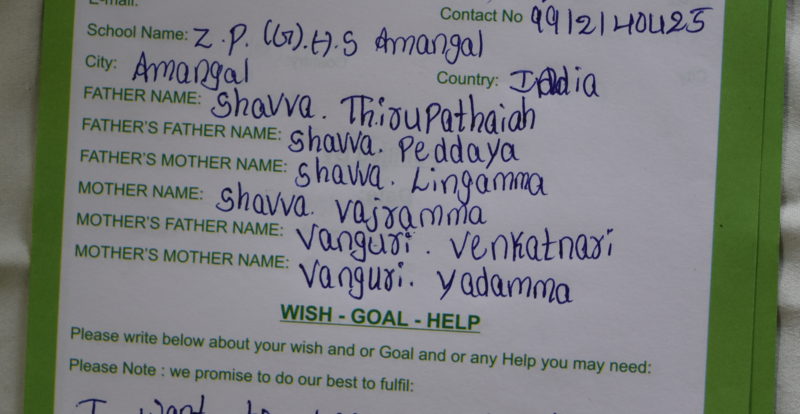 E-mail:
Contact No 9912140425
School Name: Z.P.(G).H.S Amangal
City: Amangal Country: India
FATHER NAME: Shavva. Thirupathaiah
FATHER'S FATHER NAME: Shavva. Peddaya
FATHER'S MOTHER NAME: Shavva. Lingamma
MOTHER NAME: Shavva. Vajramma
MOTHER'S FATHER NAME: Vanguri. Venkatnari
MOTHER'S MOTHER NAME: Vanguri. Yadamma
WISH - GOAL - HELP
Please write below about your wish and or Goal and or any Help you may need:
Please Note : we promise to do our best to fulfil:
I want to